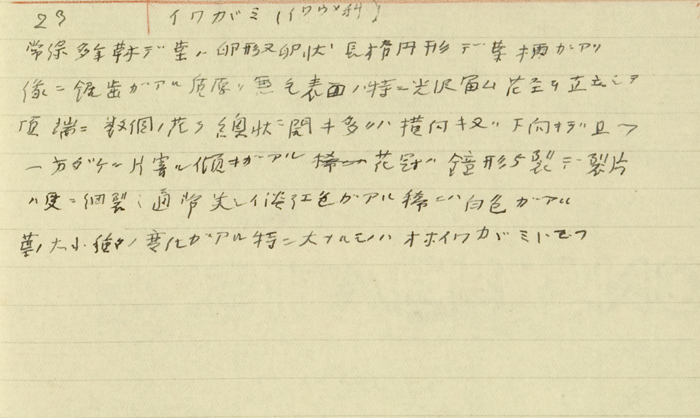 23 イワカガミ(イワウメ科)
常緑多年草デ葉ハ卵形又卵状長楕円形デ葉柄ガアリ
縁ニ鋸歯ガアル質厚ク無毛表面ハ特ニ光沢富ム花茎ヲ直立シテ
頂端ニ数個ノ花ヲ総状ニ開キ多クハ横向キ又ハ下向キデ且ツ
一方ダケニ片寄ル傾キガアル 花冠ハ鐘形5裂シ裂片
ハ更ニ細裂シ通常美シイ淡紅色ガアル稀ニハ白色ガアル
葉ノ大小種々ノ変化ガアル特ニ大ナルモノハオホイワカガミト云フ